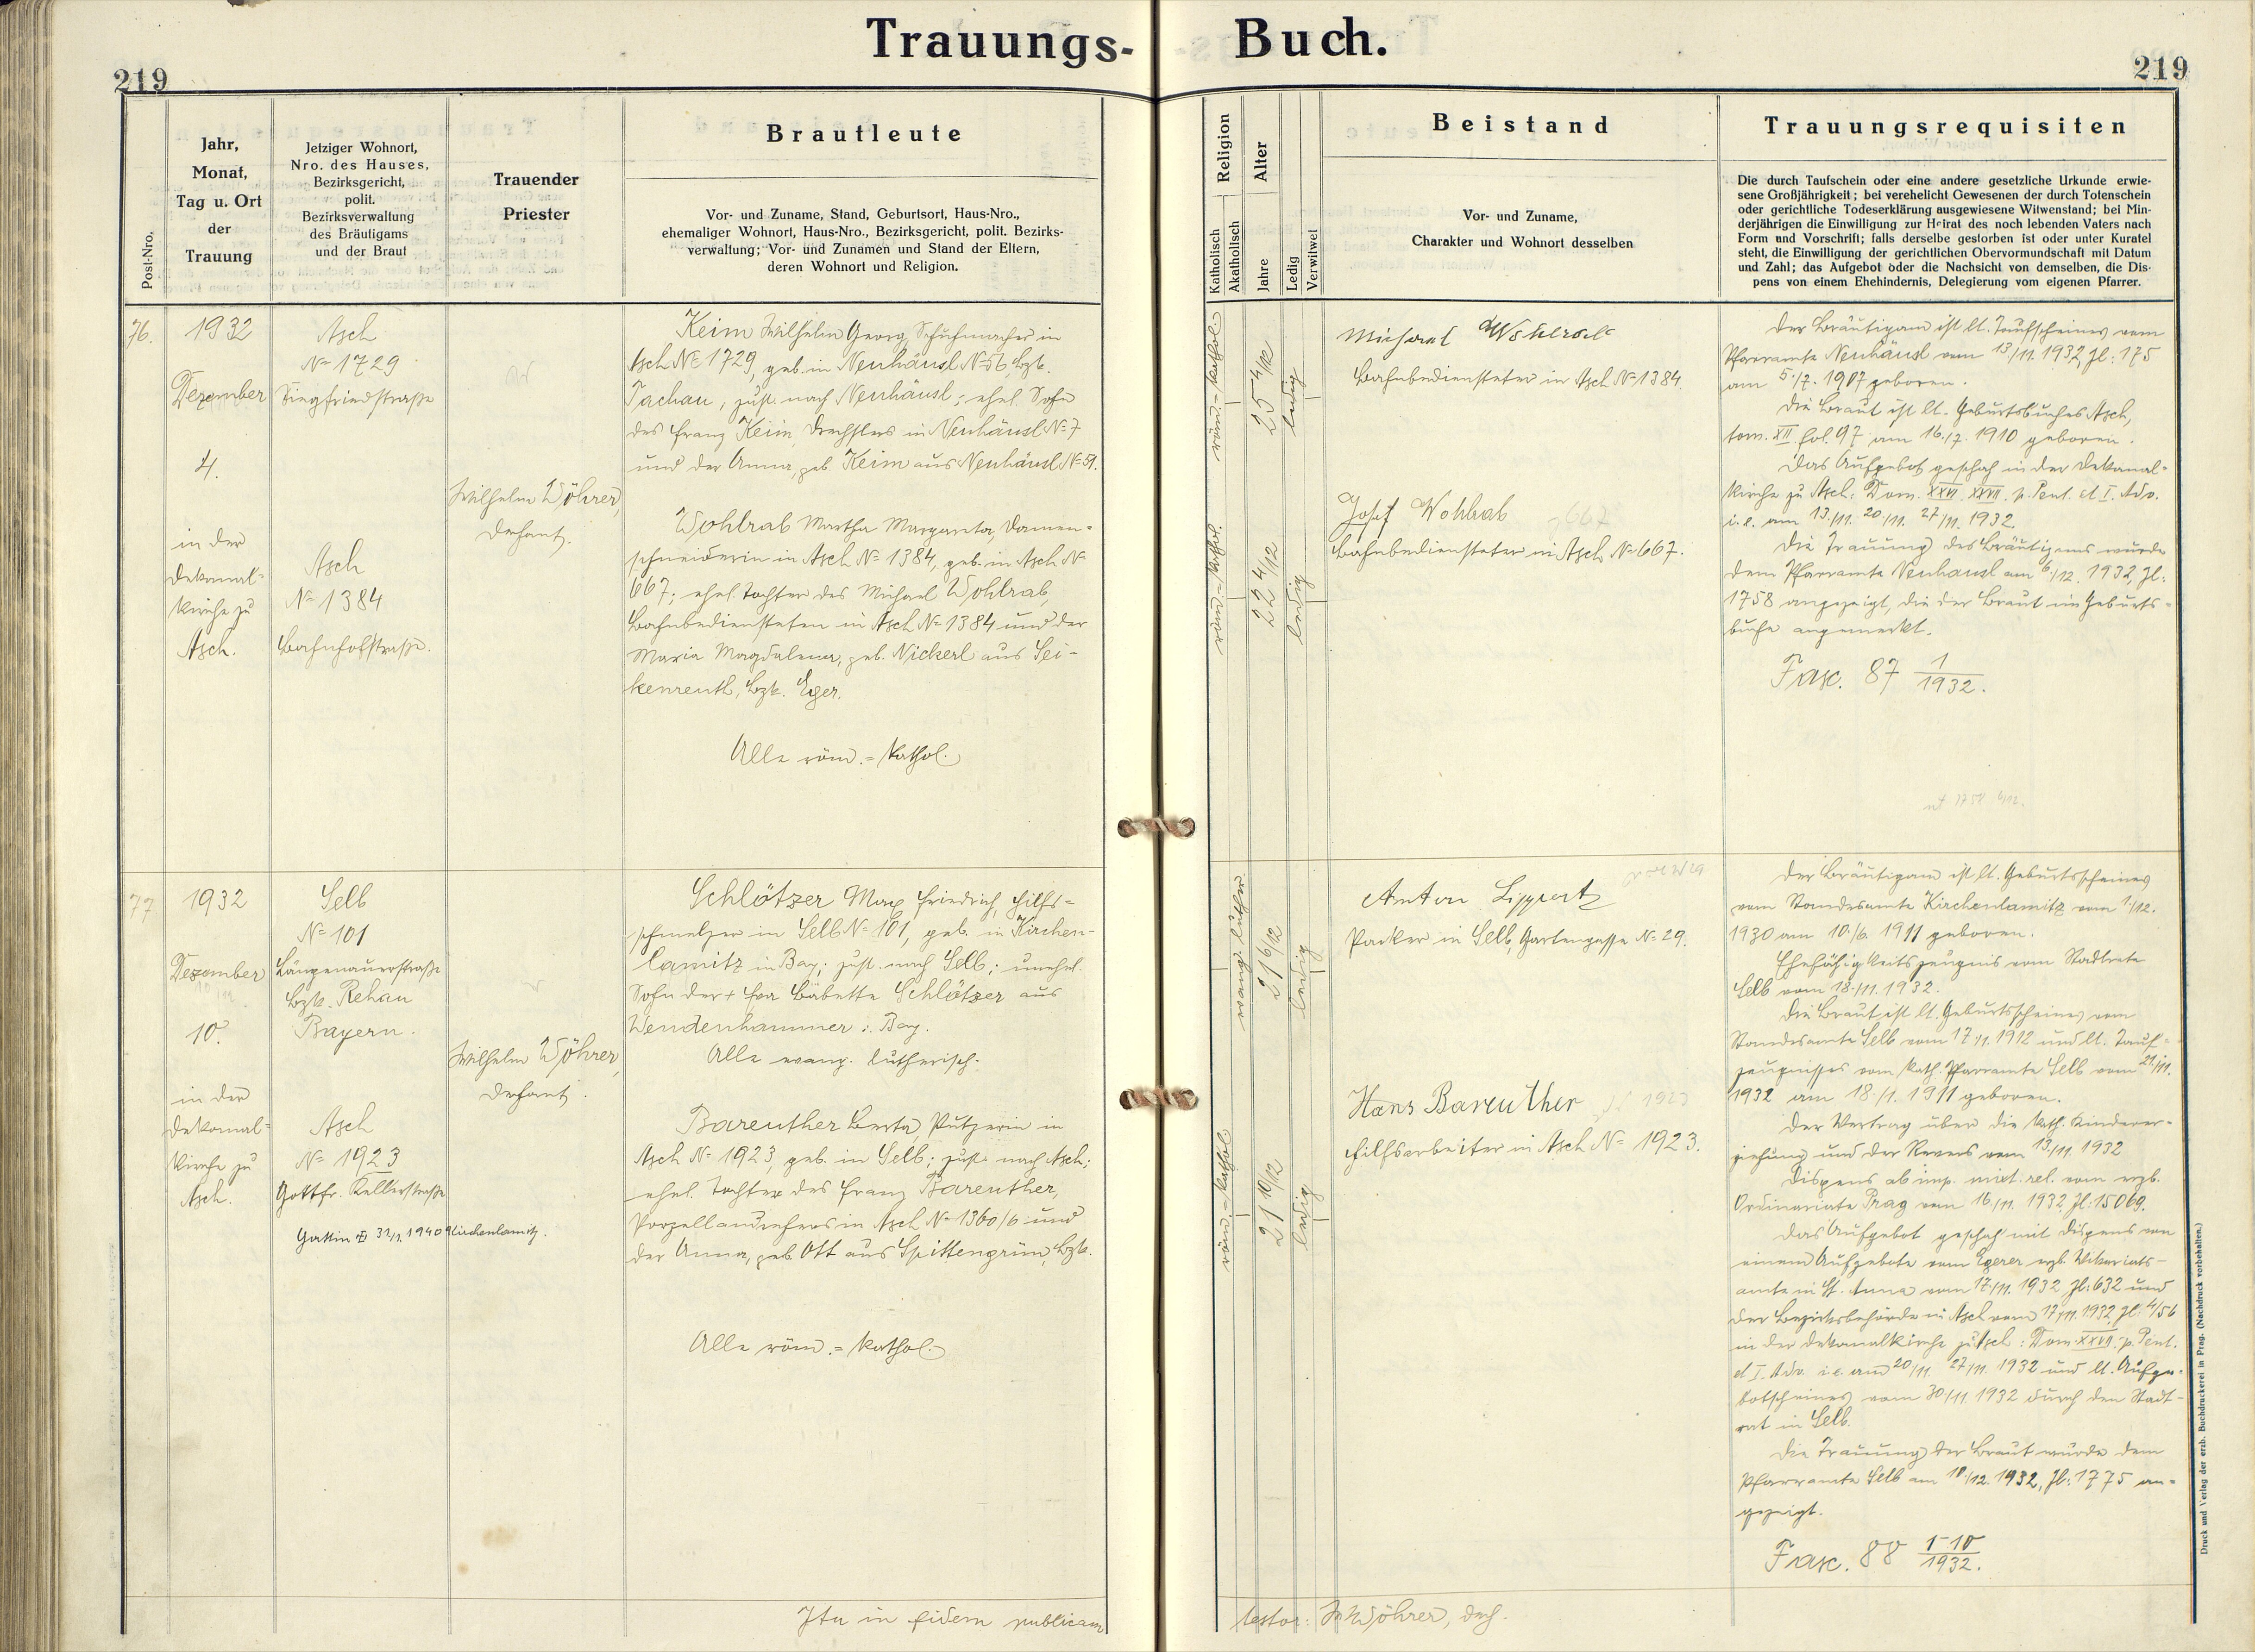 Trauungs- Buch.
219
219
Post-Nro.
Jahr,
Monat,
Tag u. Ort
der
Trauung
Jetziger Wohnort,
Nro. des Hauses,
Bezirksgericht,
polit.
Bezirksverwaltung
des Bräutigams
und der Braut
Trauender
Priester
Brautleute
Vor- und Zuname, Stand, Geburtsort, Haus-Nro.,
ehemaliger Wohnort, Haus-Nro., Bezirksgericht, polit. Bezirks-
verwaltung; Vor- und Zunamen und Stand der Eltern,
deren Wohnort und Religion.
Religion
Katholisch
Akatholisch
Alter
Jahre
Ledig
Verwitwet
Beistand
Vor- und Zuname,
Charakter und Wohnort desselben
Trauungsrequisiten
Die durch Taufschein oder eine andere gesetzliche Urkunde erwie-
sene Großjährigkeit; bei verehelicht Gewesenen der durch Totenschein
oder gerichtliche Todeserklärung ausgewiesene Witwenstand; bei Min-
derjährigen die Einwilligung zur Heirat des noch lebenden Vaters nach
Form und Vorschrift; falls derselbe gestorben ist oder unter Kuratel
steht, die Einwilligung der gerichtlichen Obervormundschaft mit Datum
und Zahl; das Aufgebot oder die Nachsicht von demselben, die Dis-
pens von einem Ehehindernis, Delegierung vom eigenen Pfarrer.
76.
1932
Dezember
4.
in der
Dekanal-
kirche zu
Asch.
Asch
No 1729
Siegfriedstraße
Asch
No 1384
Bahnhofstraße.
Wilhelm Wöhrer,
Dechant.
Keim Wilhelm Georg, Schuhmacher in
Asch No 1729, geb. in Neuhäusl No 56, Bzk.
Tachau, zust. nach Neuhäusl; ehel. Sohn
des Franz Keim, Drechslers in Neuhäusl No 7
und der Anna, geb. Keim aus Neuhäusl No 51.
Wohlrab Martha Margareta, Damen-
schneiderin in Asch No 1384, geb. in Asch No
667; ehel. Tochter des Michael Wohlrab,
Bahnbediensteten in Asch No 1384 und der
Maria Magdalena, geb. Nickerl aus Sei-
kenreuth, Bzk. Eger.
Alle röm.-kathol.
röm.-kathol.
25 4/12
ledig
röm.-kathol.
22 4/12
ledig
Michael
Bahnbediensteter in Asch No 1384.
Josef Wohlrab
Bahnbediensteter in Asch No 667.
Der Bräutigam ist lt. Taufscheines vom
Pfarramte Neuhäusl vom 13./11. 1932, Zl: 175
am 5./7. 1907 geboren.
Die Braut ist lt. Geburtsbuches Asch,
tom. XII. fol. 97 am 16./7. 1910 geboren.
Das Aufgebot geschah in der Dekanal-
kirche zu Asch: Dom. XXVI. XXVII. p. Pent. et I. Adv.
i. e. am 13./11. 20./11. 27./11. 1932.
Die Trauung des Bräutigams wurde
dem Pfarramte Neuhäusl am 6./12. 1932, Zl:
1758 angezeigt, die der Braut im Geburts-
buche angemerkt.
Fasc. 87 1/1932.
77
1932
Dezember
10.
in der
Dekanal-
kirche zu
Asch.
Selb
No 101
Längenauerstraße
Bzk. Rehau
Bayern.
Asch
No 1923
Gottfr. Kellerstraße
Gattin 1940 Kirchenlamitz.
Wilhelm Wöhrer,
Dechant.
Schlötzer Max Friedrich, Hilfs-
schmelzer in Selb No 101, geb. in Kirchen-
lamitz in Bay; zust. nach Selb; unehel.
Sohn der + Eva Babette Schlötzer aus
Wendenhammer i. Bay.
Alle evang. lutherisch.
Bareuther Berta, Putzerin in
Asch No 1923, geb. in Selb; zust. nach Asch;
ehel. Tochter des Franz Bareuther,
Porzellandrehers in Asch No 1360/6 und
der Anna, geb. Ott aus Spittengrün, Bzk.
Alle röm.-kathol.
evang. luther.
21 6/12
ledig
röm.-kathol
21 10/12
ledig
Anton Lippert
Packer in Selb, Gartengasse No 29.
Hans Bareuther
Hilfsarbeiter in Asch No 1923.
Der Bräutigam ist lt. Geburtsscheines
vom Standesamte Kirchenlamitz vom 1./12.
1930 am 10./6. 1911 geboren.
Ehefähigkeitszeugnis vom Stadtrate
Selb vom 18./11. 1932.
Die Braut ist lt. Geburtsscheines vom
Standesamte Selb vom 17./11. 1912 und lt. Tauf-
zeugnisses vom kath. Pfarramte Selb vom 21./11.
1932 am 18./1. 1911 geboren.
Der Vertrag über die kath. Kinderer-
ziehung und der Revers vom 13./11. 1932
Dispens ab imp. mixt. rel. vom erzb.
Ordinariate Prag vom 16./11. 1932, Zl: 15069.
Das Aufgebot geschah mit Dispens von
einem Aufgebote vom Egerer erzb. Vikariats-
amte in St. Anna vom 17./11. 1932 Zl: 632 und
der Bezirksbehörde in Asch vom 17./11. 1932, Zl: 4/56
in der Dekanalkirche zu Asch: Dom. XXVII. p. Pent.
et I. Adv. i. e. am 20./11. 27./11. 1932 und lt. Aufge-
botscheines vom 30./11. 1932 durch den Stadt-
rat in Selb.
Die Trauung der Braut wurde dem
Pfarramte Selb am 10./12. 1932, Zl: 1775 an-
gezeigt.
Fasc. 88 1-10/1932.
Ita in fidem publicam
testor: W. Wöhrer, Dech.
Druck und Verlag der erzb. Buchdruckerei in Prag. (Nachdruck vorbehalten.)